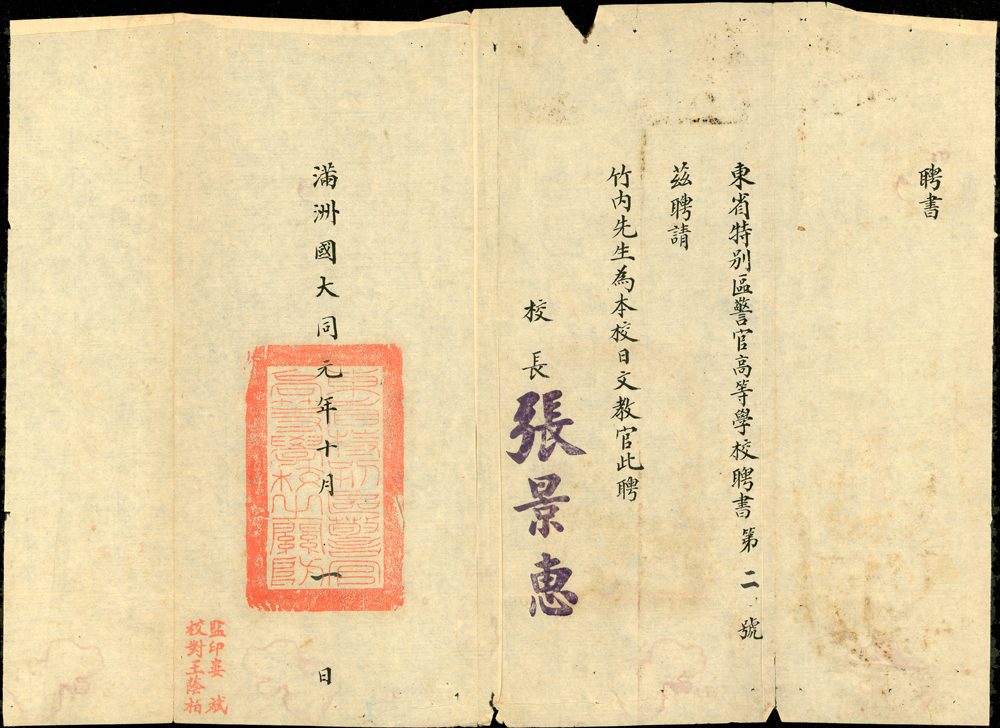 聘書
東省特別區警官高等學校聘書第二號
茲聘請
竹內先生為本校日文教官此聘
校長張景惠
滿洲國大同元年十月一日
東省特別區警官
高等學校之關防
監印婁斌
校對王蔭柏